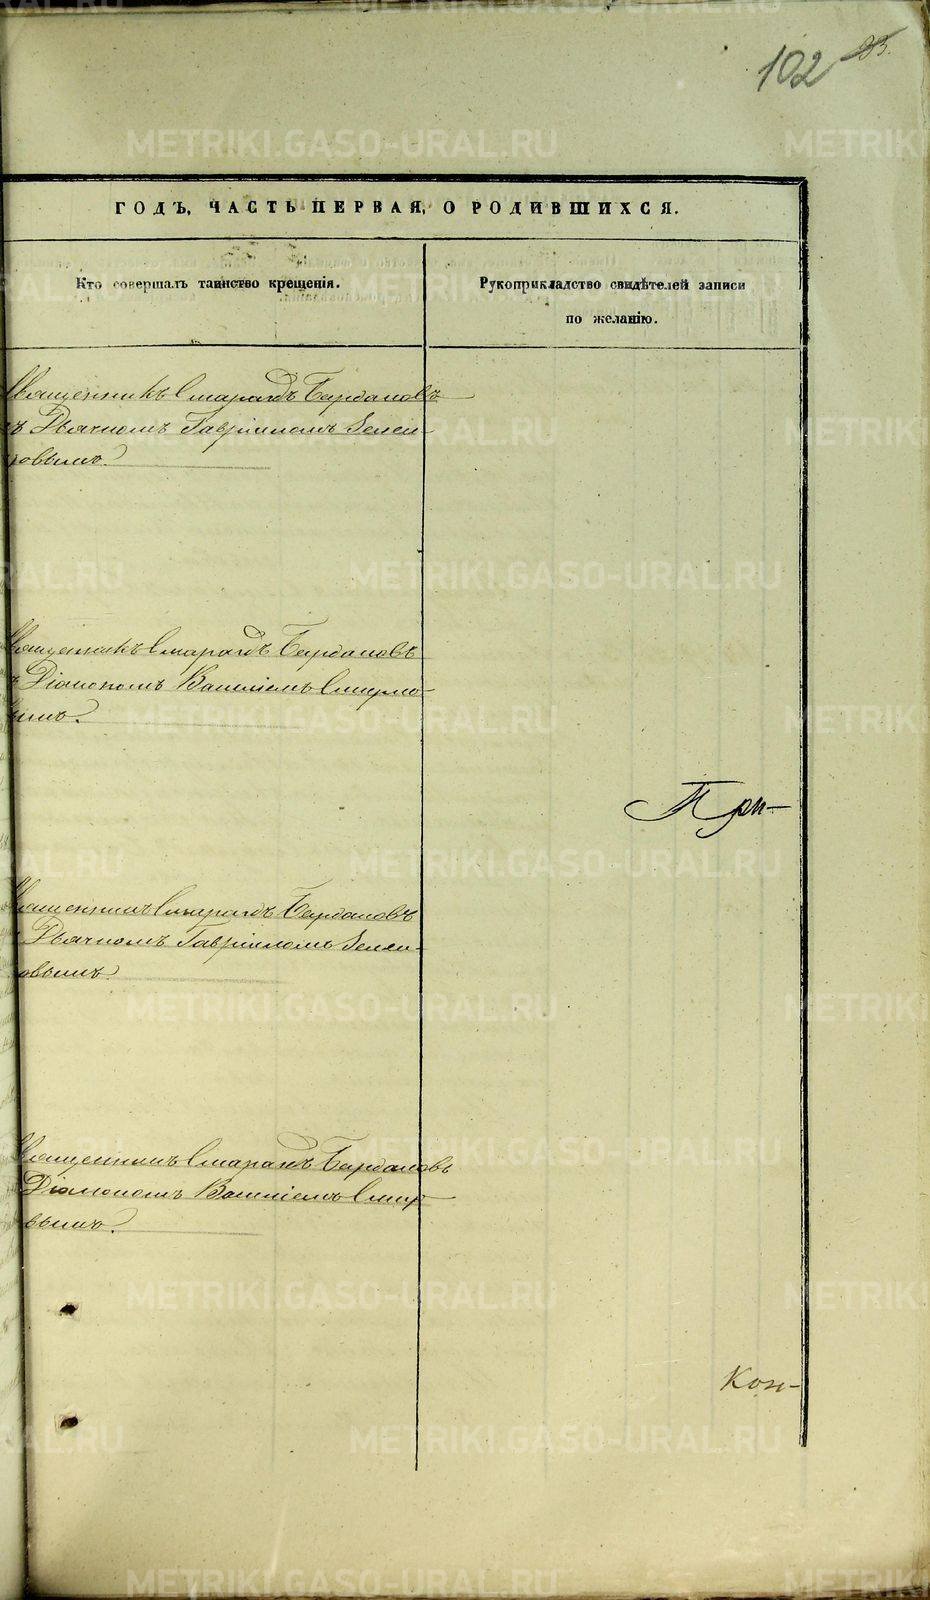 102 85.
ГОДЪ, ЧАСТЬ ПЕРВАЯ, О РОДИВШИХСЯ.
Кто совершалъ таинство крещенія.
Рукоприкладство свидѣтелей записи
по желанію.
Священникъ Смарагдъ Бардановъ
съ Дьячкомъ Гавріиломъ
овымъ.
Священникъ Смарагдъ Бардановъ
Діакономъ Василіемъ
вымъ.
При-
Священникъ Смарагдъ Бардановъ
Дьячкомъ Гавріиломъ
овымъ.
Священникъ Смарагдъ Бардановъ
Діакономъ Василіемъ
вымъ.
METRIKI.GASO-URAL.RU